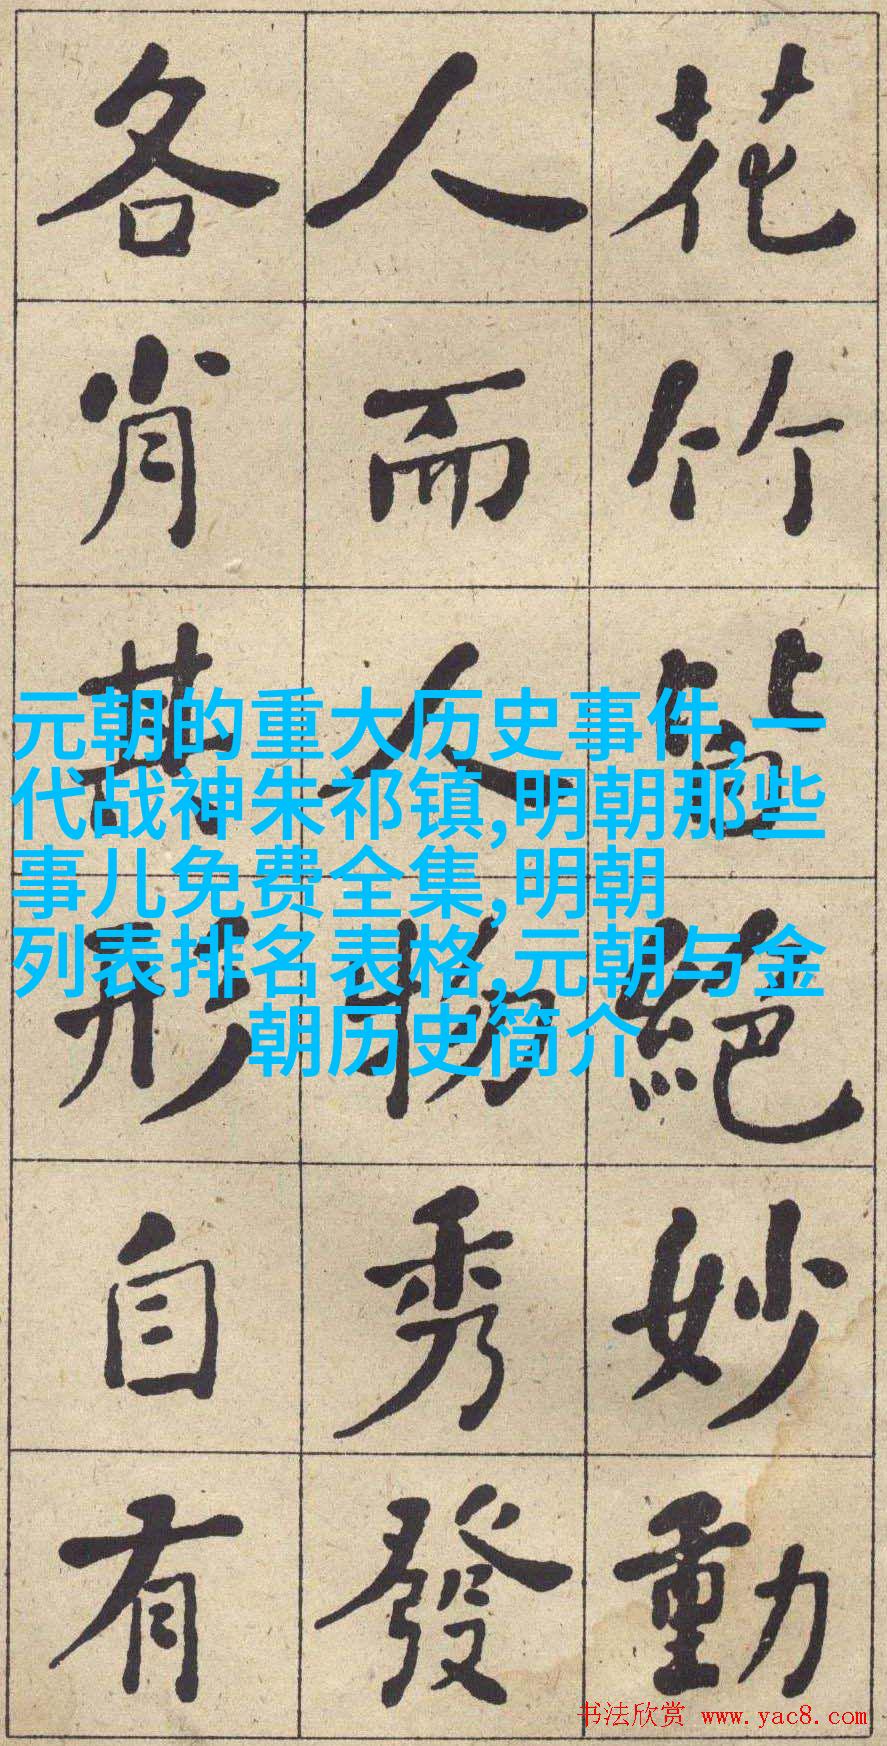 花竹皆絕妙動
人而人物秀發
各肖其形自有
元朝的重大历史事件,一
代战神朱祁镇,明朝那些
事儿免费全集,明朝
列表排名表格,元朝与金
朝历史简介
书法欣赏 www.yac8.com